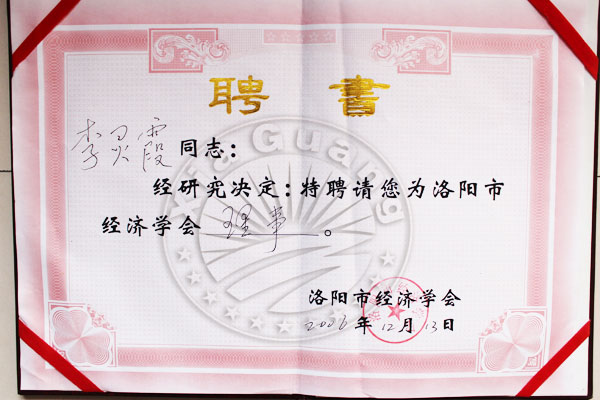 聘書
李灵霞同志：
经研究决定：特聘请您为洛阳市
经济学会理事。
洛阳市经济学会
2006年12月13日
Xia Guang